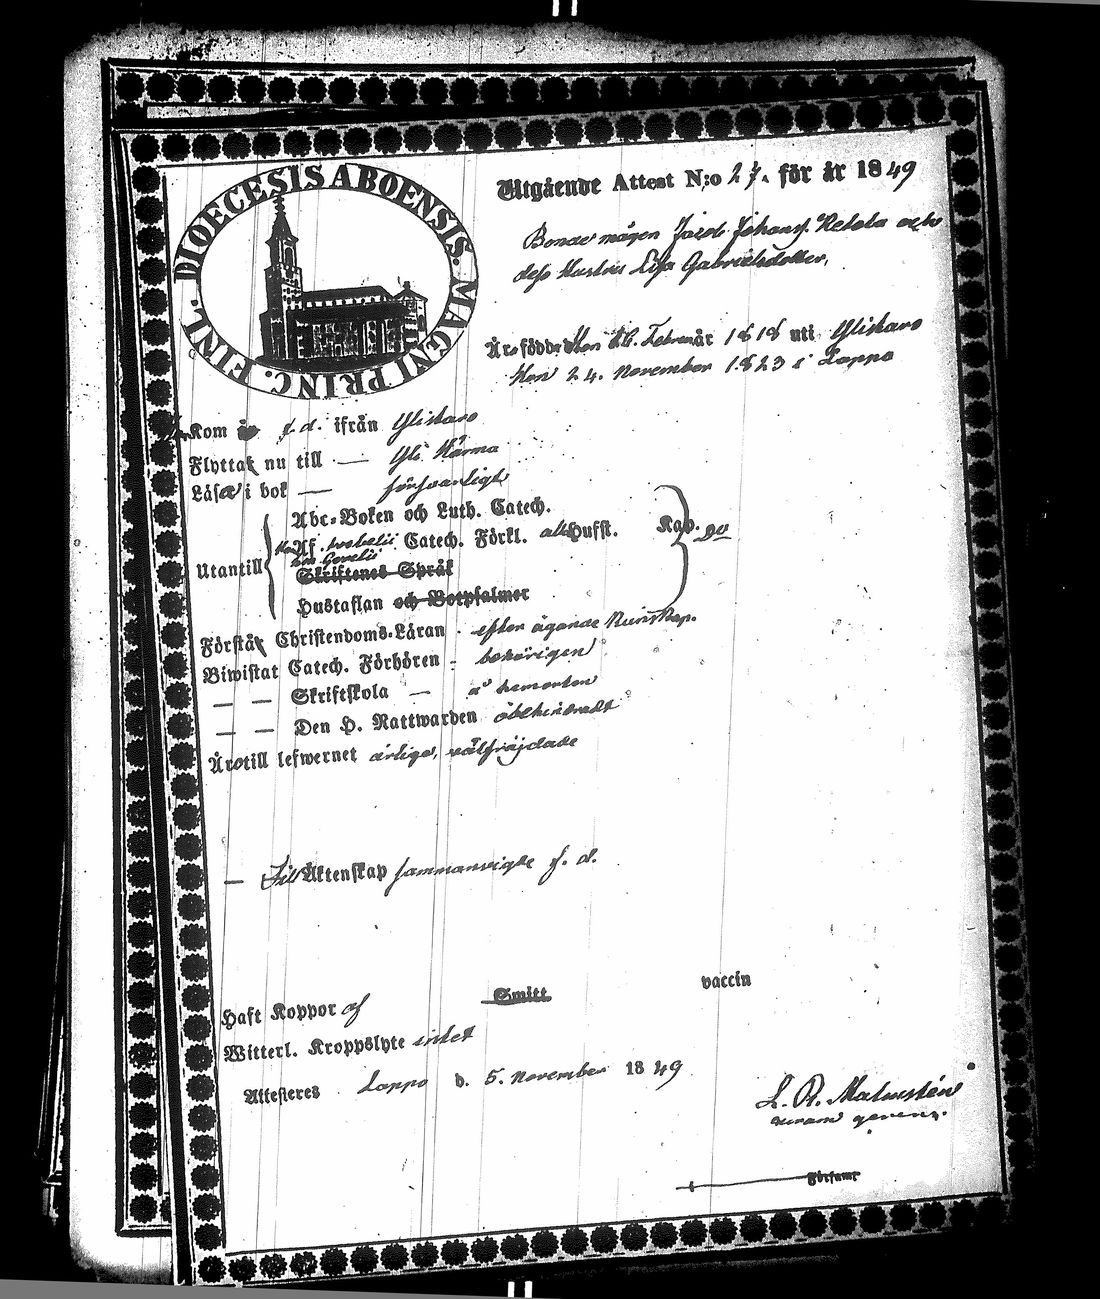 DIOECESIS ABOENSIS. MAGNI PRINC. FINL.
Utgående Attest N:o 27. för år 1849
Bonde mågen Jacob Johans. Retola och
dess Hustru Lisa Gabrielsdotter,
Äro födde Han Febru år 1818 uti Ylistaro
Hon 24. November 1823 i Lappo
Kom f. d. ifrån Ylistaro
Flytta nu till — Yli Härmä
Läsa i bok — försvarligt
Utantill
Abc-Boken och Luth. Catech.
Af Svebelii Catech. Förkl. Husst. Kap.
Skriftenes Språk
Hustaflan och Botpsalmer
Förstå Christendoms-Läran efter ägande Kunskap.
Biwistat Catech. Förhören behörigen
— — Skriftskola — å hemorten
— — Den H. Nattwarden obehindradt
Äro till lefwernet ärlige, välfräjdade
— Till Äktenskap sammanvigde f. d.
Haft Koppor af Smitt vaccin
Witterl. Kroppslyte intet
Attesteres Lappo d. 5. November 1849
L. R. Malmstén